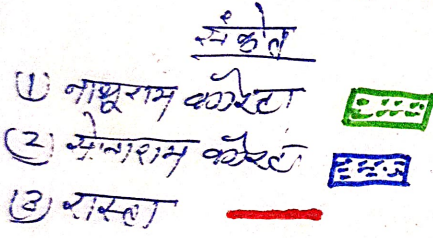 संकेत
(1) नाथूराम कोरटा
(2) सोनाराम कोरटा
(3) रास्ता